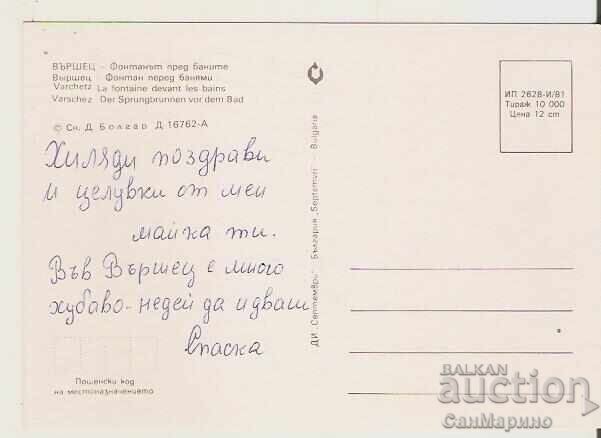 ВЪРШЕЦ – Фонтанът пред баните
Выршец – Фонтан перед банями
Varchetz La fontaine devant les bains
Varschez Der Sprungbrunnen vor dem Bad
© Сн. Д. Болгар Д-16762-А
Хиляди поздрави
и целувки от мен
майка ти.
Във Вършец е много
хубаво-недей да идваш
Спаска
Пощенски код
на местоназначението
ДИ „Септември" – България „Septemvri" – Bulgaria
ИП 2628-И/81
Тираж 10 000
Цена 12 ст
BALKAN
auction
СанМарино